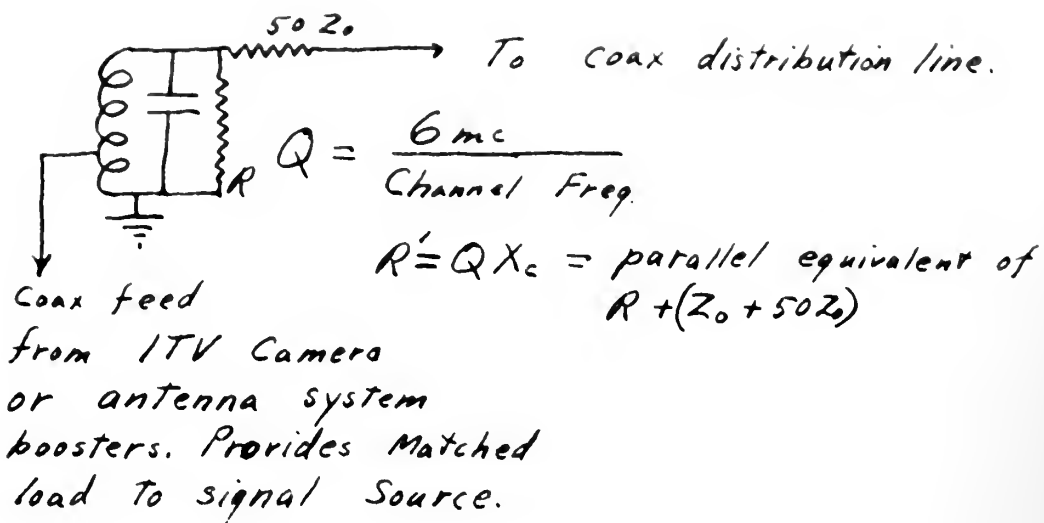 50 Z₀
To coax distribution line.
R
Q = 6 mc / Channel Freq.
R' = QXc = parallel equivalent of
R + (Z₀ + 50Z₀)
Coax feed
from ITV Camera
or antenna system
boosters. Provides Matched
load To signal Source.